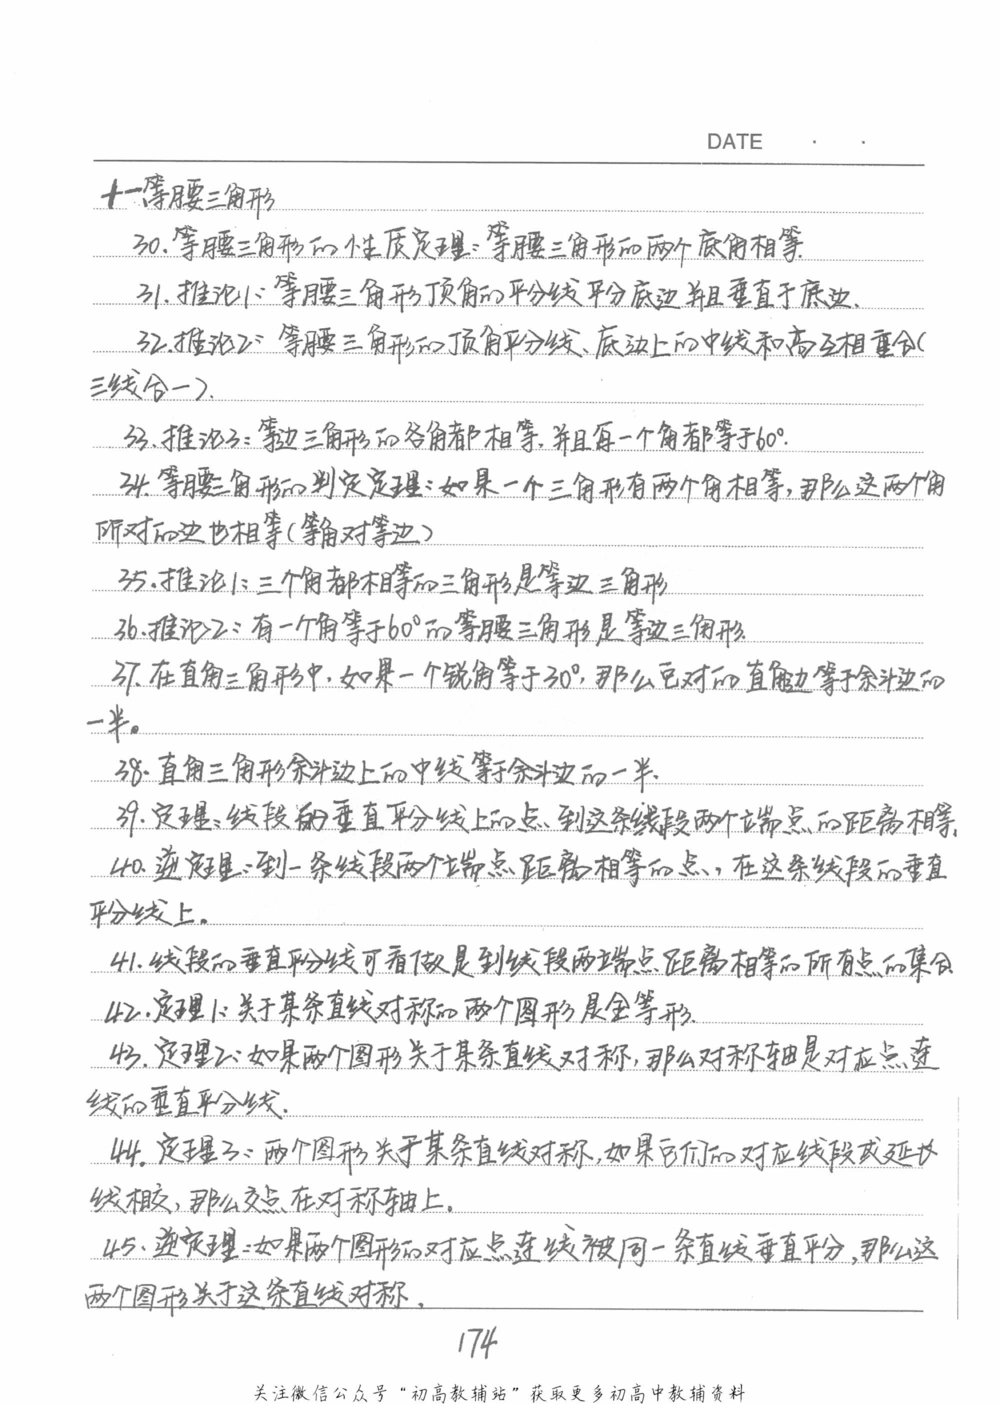 DATE . .
十一等腰三角形
30.等腰三角形的性质定理:等腰三角形的两个底角相等.
31.推论1:等腰三角形顶角的平分线平分底边并且垂直于底边.
32.推论2:等腰三角形的顶角平分线、底边上的中线和高互相重合(
三线合一).
33.推论3:等边三角形的各角都相等.并且每一个角都等于60°.
34.等腰三角形的判定定理:如果一个三角形有两个角相等,那么这两个角
所对的边也相等(等角对等边)
35.推论1:三个角都相等的三角形是等边三角形
36.推论2:有一个角等于60°的等腰三角形是等边三角形.
37.在直角三角形中,如果一个锐角等于30°,那么它对的直角边等于斜边的
一半。
38.直角三角形斜边上的中线等于斜边的一半.
39.定理:线段的垂直平分线上的点到这条线段两个端点的距离相等.
40.逆定理:到一条线段两个端点距离相等的点,在这条线段的垂直
平分线上。
41.线段的垂直平分线可看做是到线段两端点距离相等的所有点的集合
42.定理1:关于某条直线对称的两个图形是全等形.
43.定理2:如果两个图形关于某条直线对称,那么对称轴是对应点连
线的垂直平分线.
44.定理3:两个图形关于某条直线对称,如果它们的对应线段或延长
线相交,那么交点在对称轴上.
45.逆定理:如果两个图形的对应点连线被同一条直线垂直平分,那么这
两个图形关于这条直线对称.
174
关注微信公众号“初高教辅站”获取更多初高中教辅资料